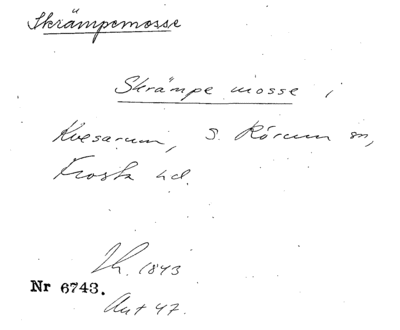 Skrämpemosse
Skrämpe mosse i
Kvesarum, S. Rörum sn,
Frosta hd.
Lh. 1843
Nr 6743.
Ant 47.